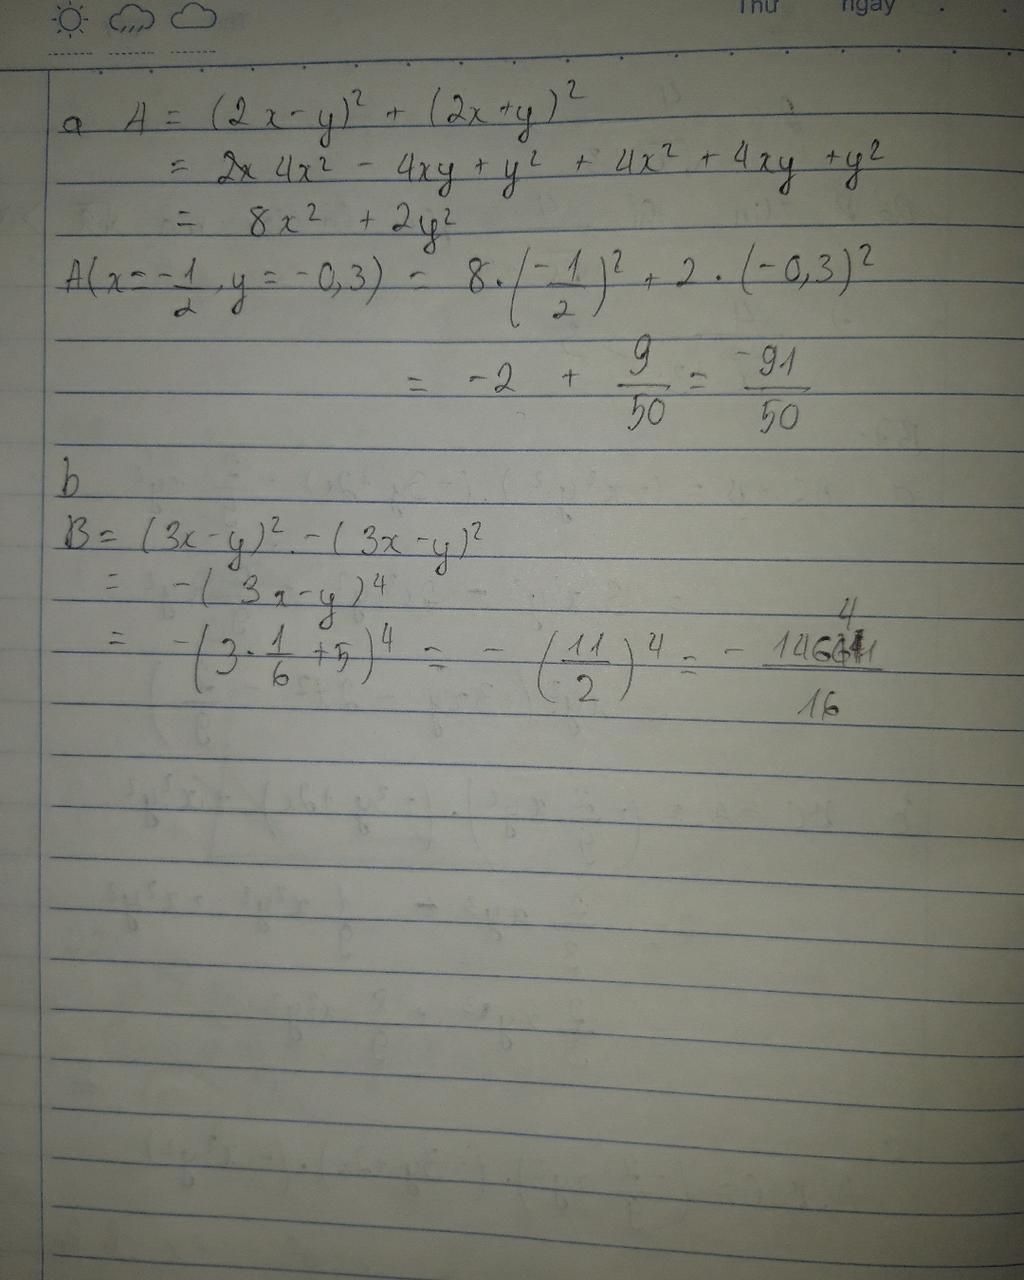 Thứ ngày
a A = (2x - y)² + (2x + y)²
= 2x 4x² - 4xy + y² + 4x² + 4xy + y²
= 8x² + 2y²
A(x = -1/2, y = -0,3) = 8 . (-1/2)² + 2 . (-0,3)²
= -2 + 9/50 = -91/50
b
B = (3x - y)² . - (3x - y)²
= -(3x - y)⁴
= -(3 . 1/6 + 5)⁴ = -(11/2)⁴ = - 14641/16